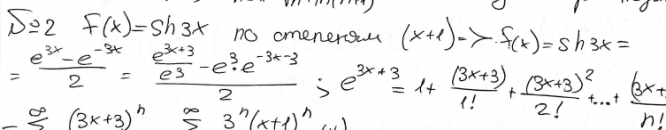 №2 f(x)=sh3x по степеням (x+1)=> f(x)=sh3x=
= (e^{3x}-e^{-3x})/2 = (e^{3x+3}/e^3 - e^3·e^{-3x-3})/2 ; e^{3x+3}=1+ (3x+3)/1! + (3x+3)^2/2! +...+ (3x+
= ∞ (3x+3)^n ∞ 3^n(x+1)^n n!